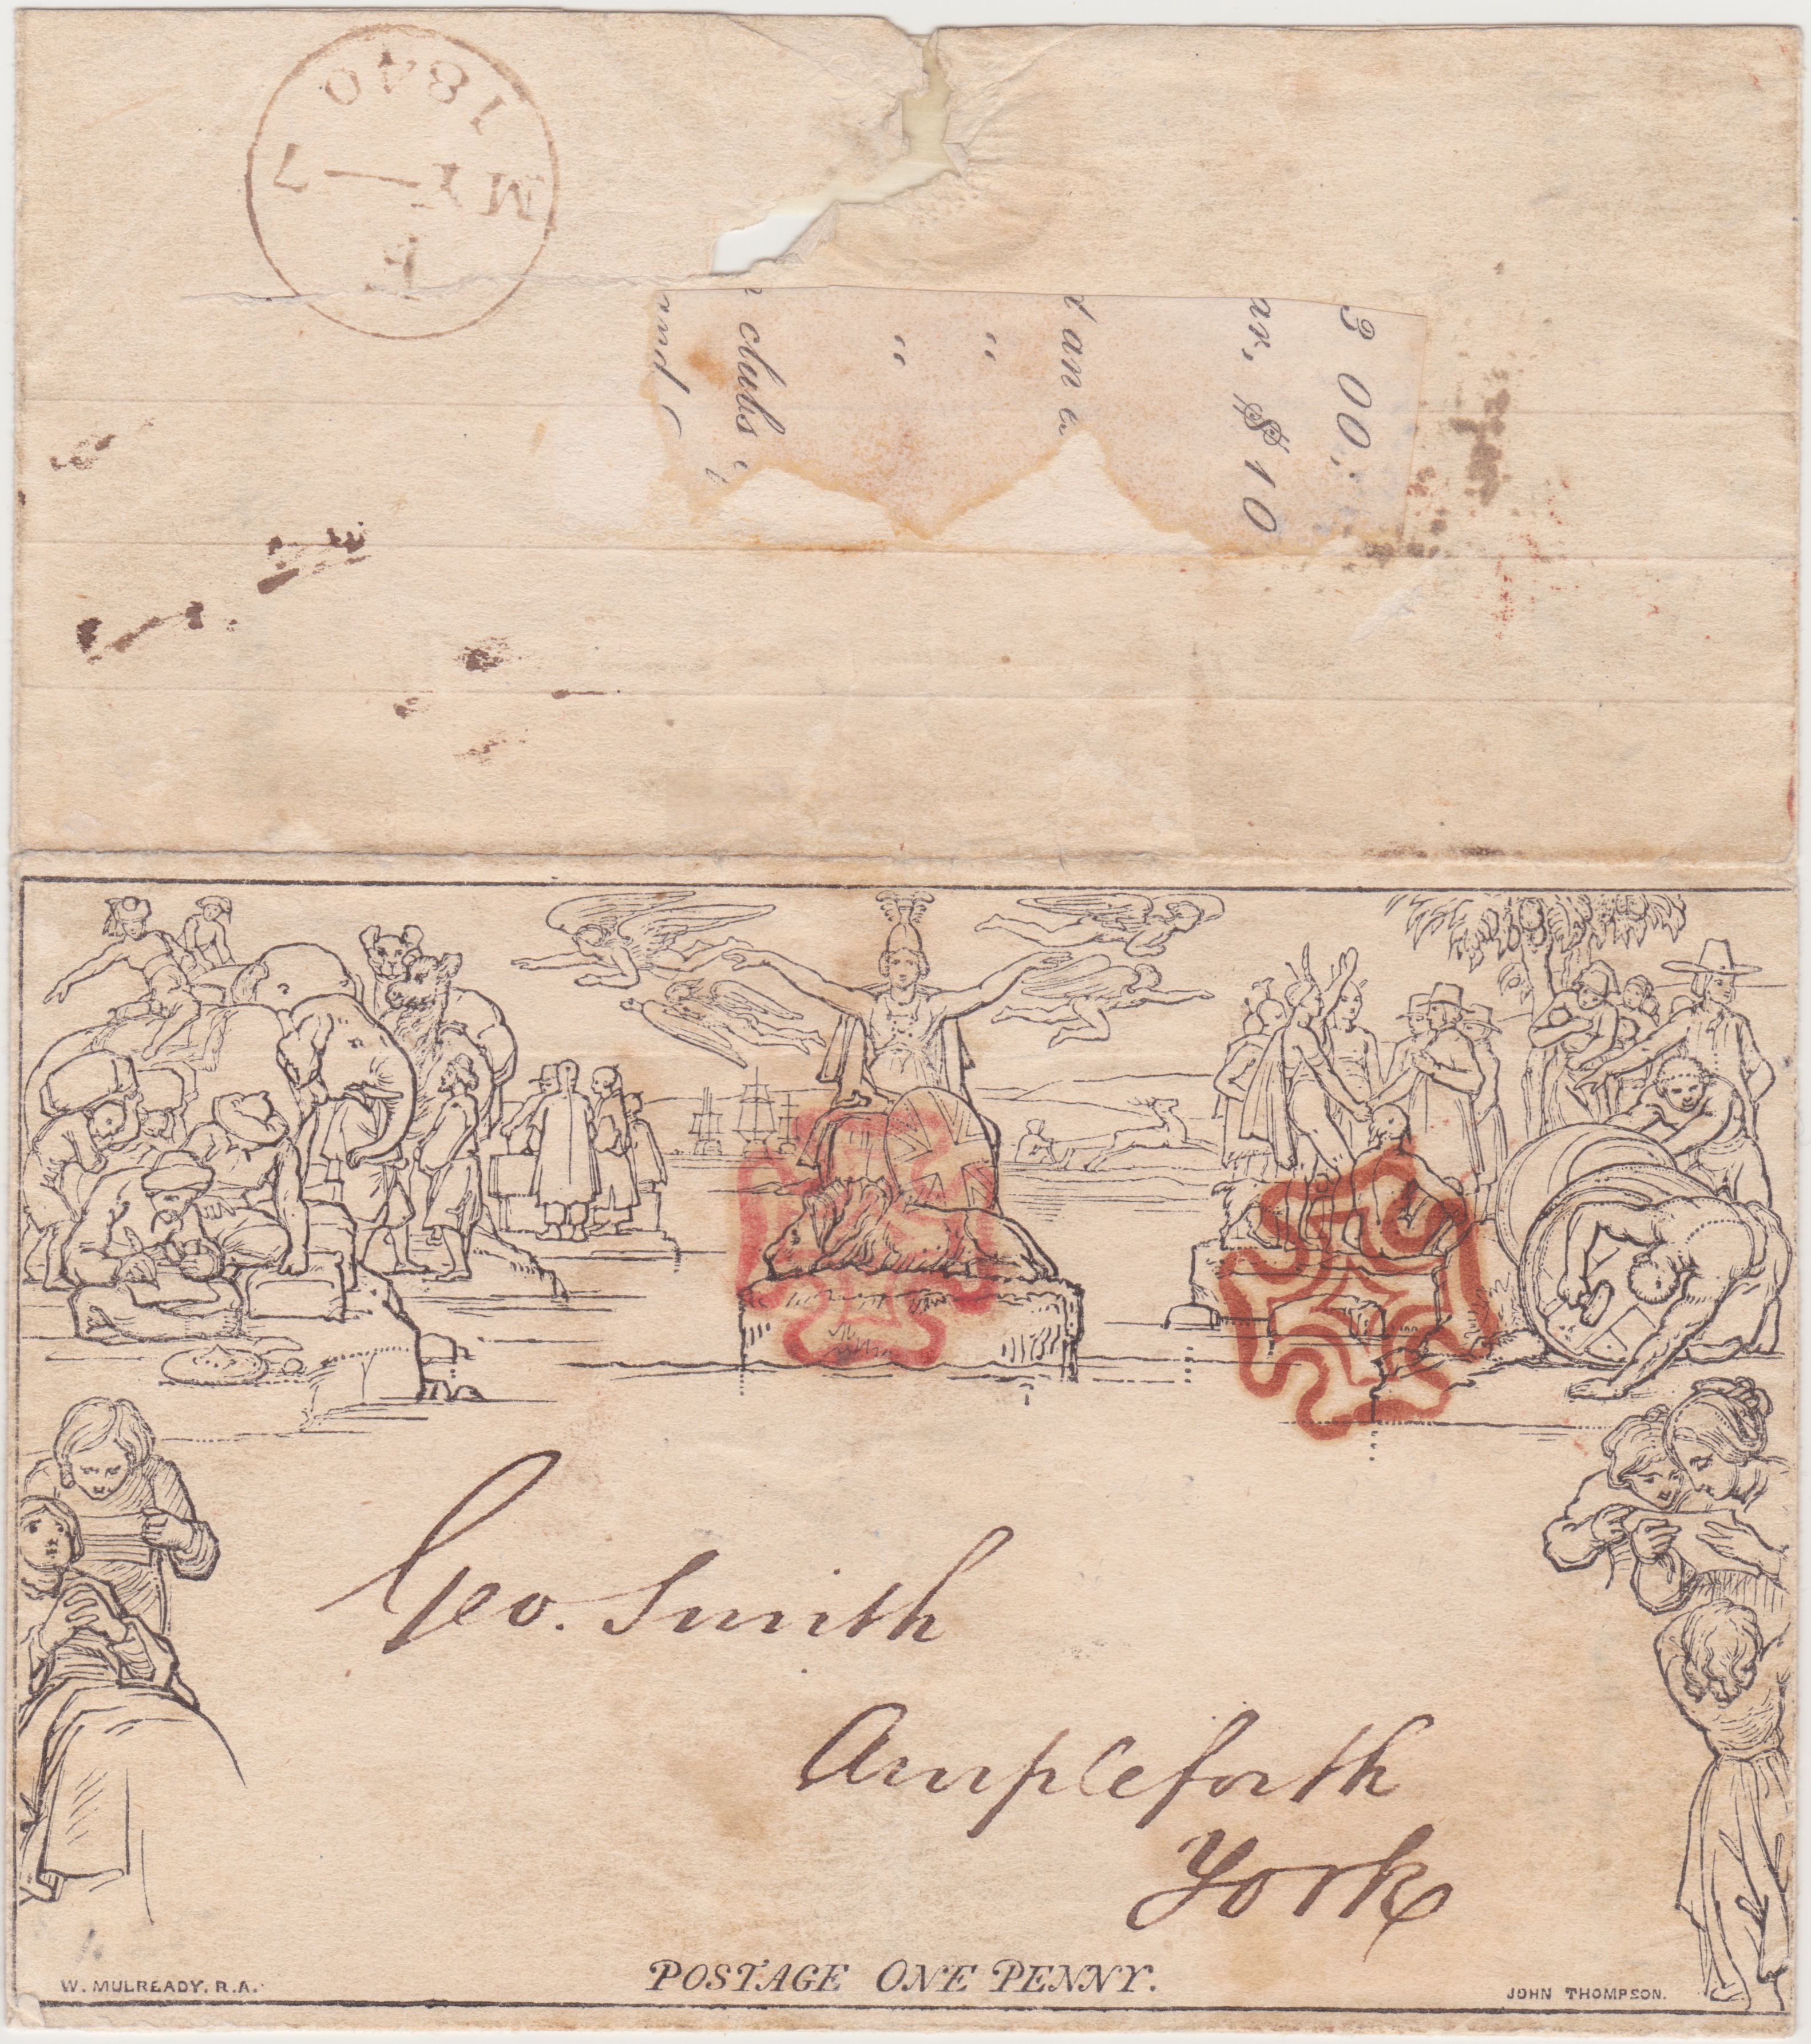 1840
MY—7
3 00.
ar, $10
t an
"
"
clubs
and
Geo. Smith
Ampleforth
York
POSTAGE ONE PENNY.
W. MULREADY, R.A.
JOHN THOMPSON.